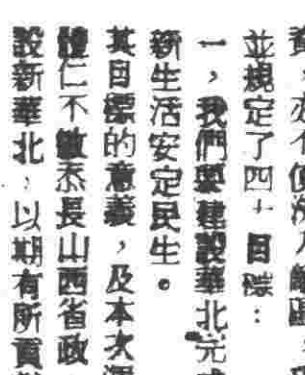 並規定了四大目標：
一，我們要建設華北完
新生活安定民生。
其目標的意義，及本次
體仁不敏忝長山西省政
設新華北，以期有所貢